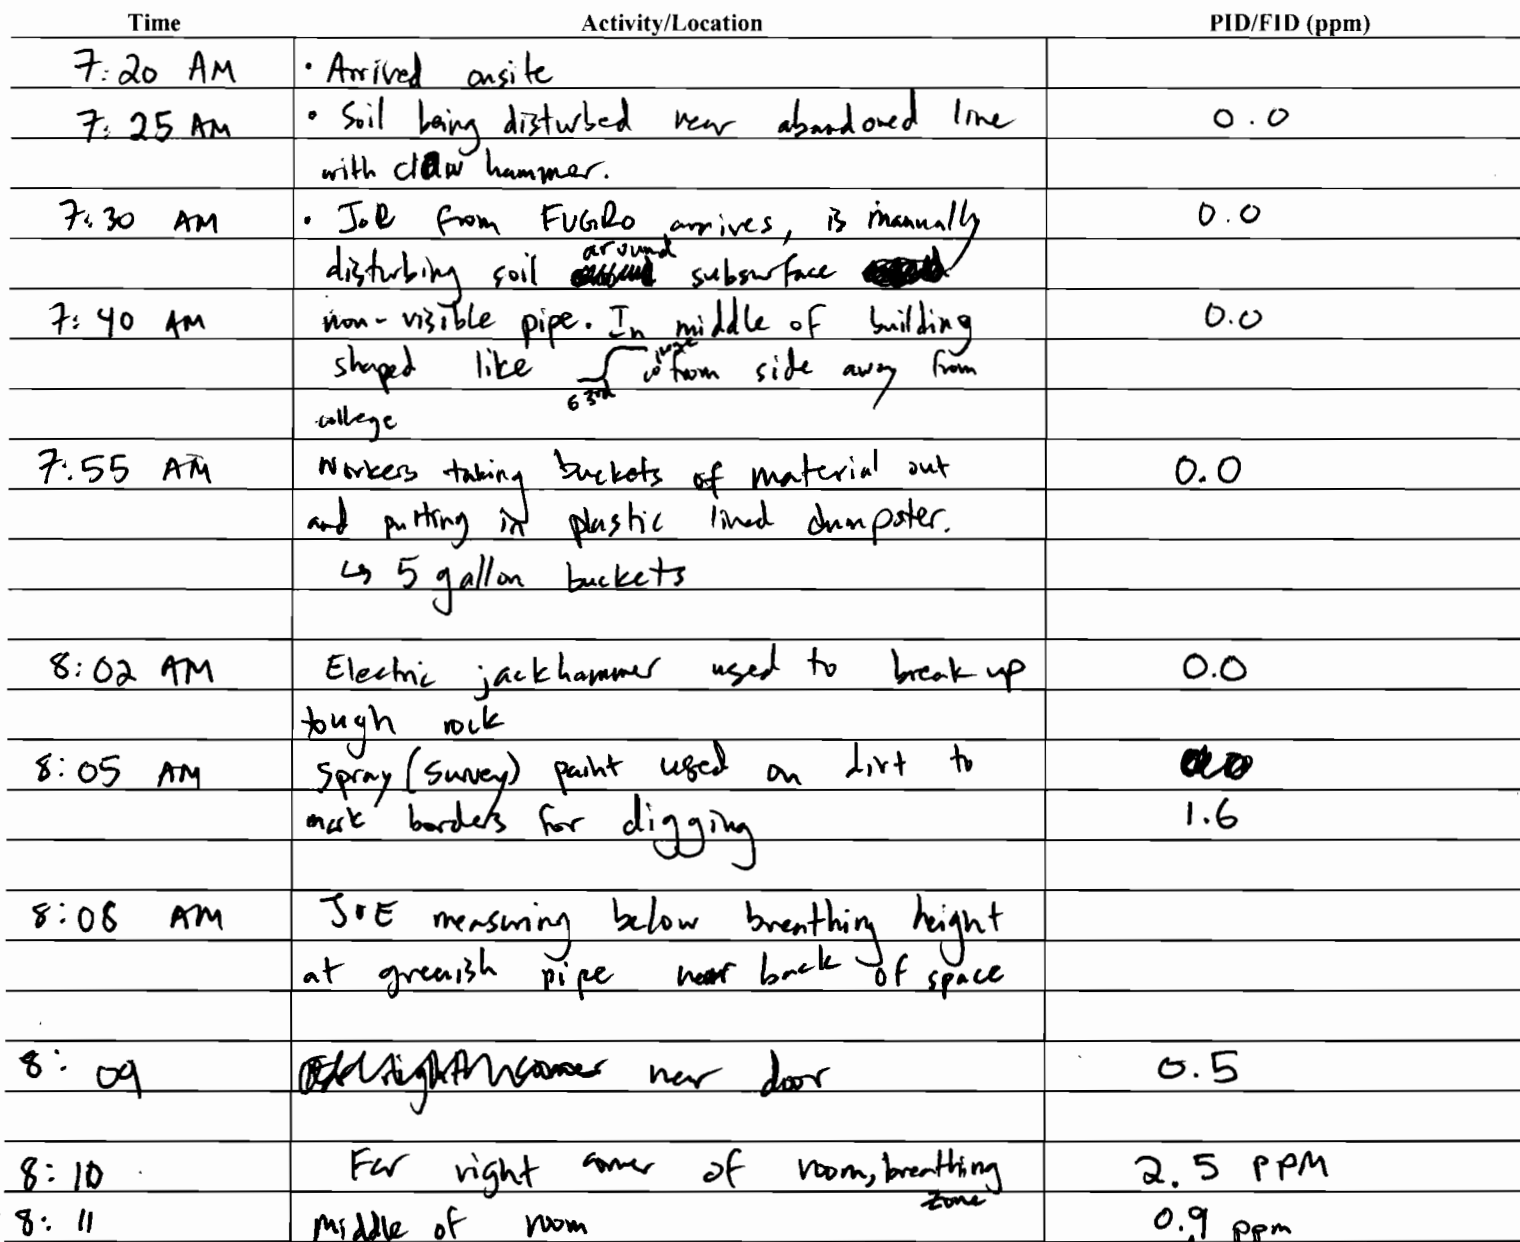 Time Activity/Location PID/FID (ppm)
7:20 AM • Arrived onsite
7:25 AM • Soil being disturbed near abandoned line 0.0
with claw hammer.
7:30 AM • JoE from FUGRO arrives, is manually 0.0
around
disturbing soil subsurface
7:40 AM non-visible pipe. In middle of building 0.0
shaped like from side away from
63rd
college
7:55 AM Workers taking buckets of material out 0.0
and putting in plastic lined dumpster.
↳ 5 gallon buckets
8:02 AM Electric jackhammer used to break up 0.0
tough rock
8:05 AM Spray (Survey) paint used on dirt to
mark borders for digging 1.6
8:08 AM JoE measuring below breathing height
at greenish pipe near back of space
8:09 near door 0.5
8:10 Far right corner of room, breathing 2.5 PPM
zone
8:11 Middle of room 0.9 ppm